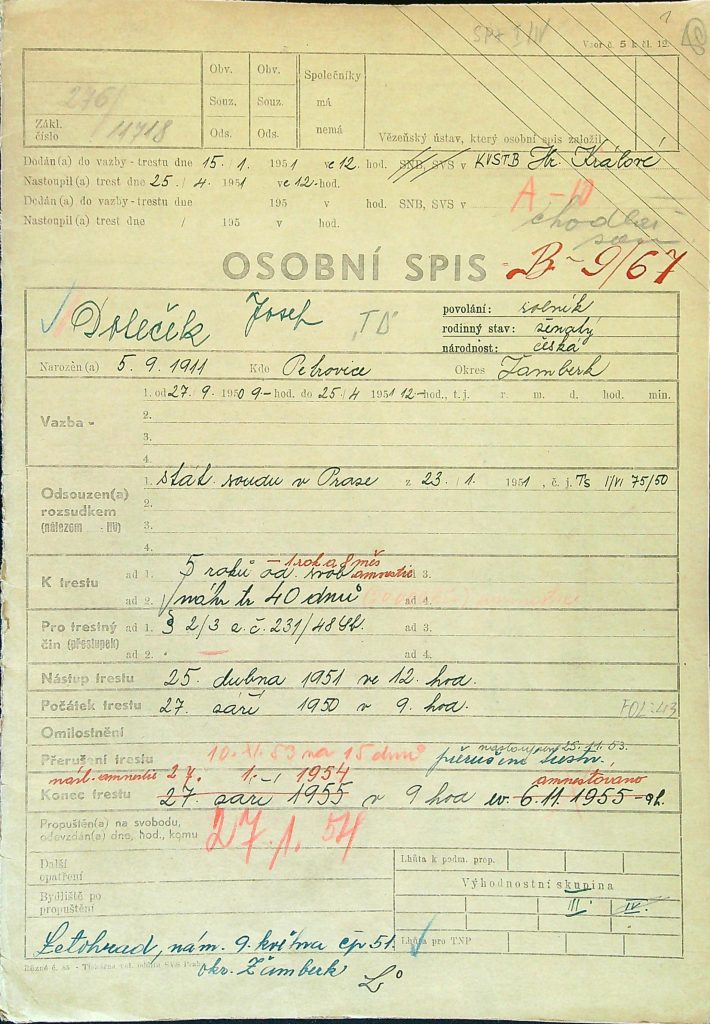 1
Vzor č. 5 k čl. 12.
Obv. Obv. Společníky
276/ Souz. Souz. má
Zákl. číslo 11718 Ods. Ods. nemá
Vězeňský ústav, který osobní spis založil
Dodán(a) do vazby - trestu dne 15. / 1. 1951 ve 12. hod. SNB, SVS v KVSTB Hr. Králové
Nastoupil(a) trest dne 25 / 4. 1951 ve 12 hod.
A - 10
Dodán(a) do vazby - trestu dne 195 v hod. SNB, SVS v
Nastoupil(a) trest dne / 195 v hod.
OSOBNÍ SPIS B - 9/67
Doleček Josef "TD"
povolání: rolník
rodinný stav: ženatý
národnost: česká
Narozen(a) 5. 9. 1911 Kde Petrovice Okres Žamberk
Vazba -
1. od 27. / 9. 1950 9- hod. do 25 / 4 1951 12- hod., t. j. r. m. d. hod. min.
2.
3.
4.
Odsouzen(a) rozsudkem (nálezem - HV)
1. stát. soudu v Praze z 23. / 1. 1951, č. j. Ts I/VI 75/50
2.
3.
4.
- 1 rok a 8 měs
K trestu ad 1. 5 roků od. svob amnestie ad 3.
ad 2. náhr tr 40 dnů ad 4.
Pro trestný čin (přestupek) ad 1. § 2/3 a. č. 231/48 Sb. ad 3.
ad 2. - ad 4.
Nástup trestu 25. dubna 1951 ve 12. hod.
Počátek trestu 27. září 1950 v 9. hod. FOL: 43
Omilostnění
Přerušení trestu 10. XI. 53 na 15 dnů 25. 11. 53.
násl. amnestie 27. 1. - 1954 amnestováno
Konec trestu 27. září 1955 v 9 hod ev. 6. 11. 1955 - 9h.
Propuštěn(a) na svobodu, odevzdán(a) dne, hod., komu 27. 1. 54
Další opatření
Lhůta k podm. prop.
Výhodnostní skupina
III. IV.
Bydliště po propuštění
Lhůta pro TNP
Letohrad, nám. 9. května čp 51.
okr. Žamberk